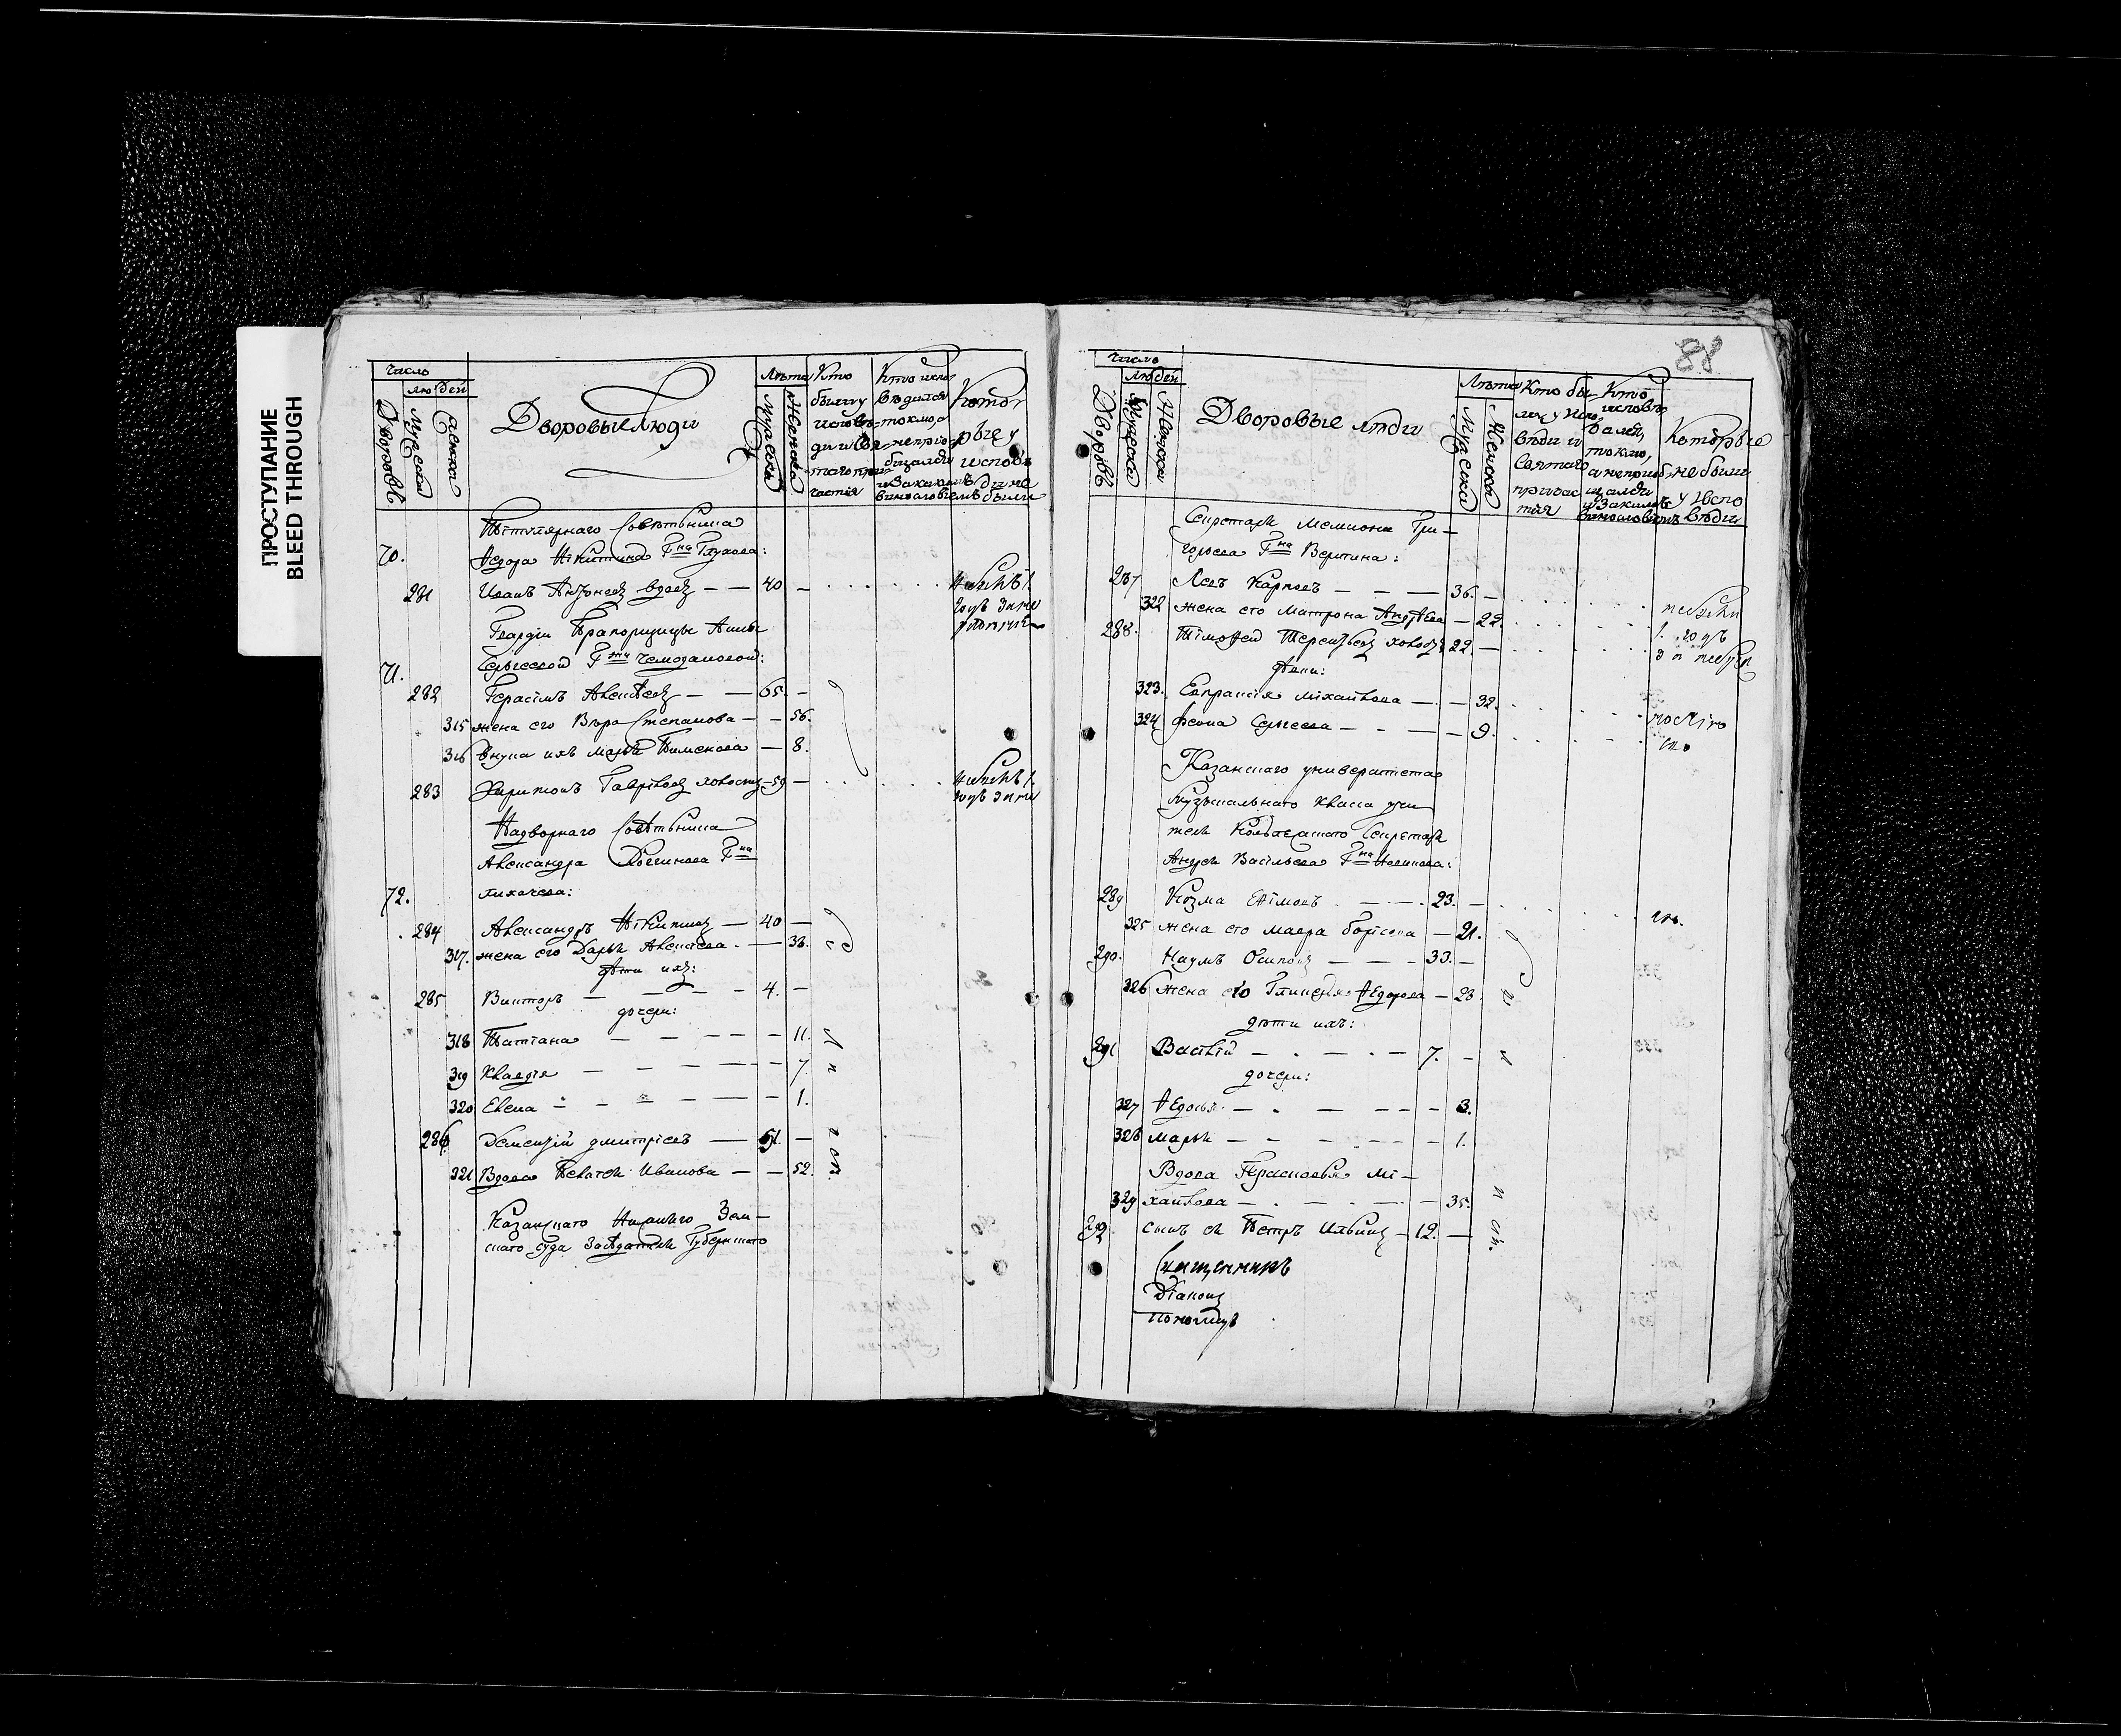 ПРОСТУПАНИЕ
BLEED THROUGH
Число
людей
Дворовъ
Мужеска
Женска
Дворовые Люди
Лѣта
Мужеска
Женска
Кто
были у
исповѣ-
ди и Свя-
таго при-
частія
Кто испо-
вѣдался
токмо, а
не пріоб-
щался
и за какимъ
винословіемъ
Кото-
рые у
исповѣ
ди не
были
Титулярнаго Совѣтника
70. Ѳедора Никитина Г-на Глухова:
281 Иванъ Антоновъ вдовъ — — 40 —
Гвардіи Прапорщицы Анны
71. Сергеевой Г-жи Чемодановой:
282 Герасимъ Алексѣевъ — — 65. —
315 жена его Вѣра Степанова — — 56.
316 внука ихъ Марья Пименова — 8.
283 Харитонъ Гавриловъ холостъ — 59 —
Надворнаго Совѣтника
Александра Логгинова Г-на
72. Лихачева:
284 Александръ Никитинъ — 40 —
317. жена его Дарья Алексѣева — 38.
дѣти ихъ:
285 Викторъ — — — — 4. —
дочери:
318 Татіана — — — — — 11.
319 Клавдія — — — — — 7.
320 Елена — — — — — 1.
286. Дементій Дмитріевъ — 61. —
321 Вдова Пелагея Иванова — — 52.
Казанскаго Нижняго Зем—
скаго суда Засѣдателя Губернскаго
88
Число
людей
Дворовъ
Мужеска
Женска
Дворовые люди
Лѣта
Мужеска
Женска
Кто бы-
ли у Испо
вѣди и
Святаго
причас
тія
Кто
исповѣ
дался,
токмо,
а не приоб
щался
и за какимъ
винословіемъ
Которые
не были
у Испо
вѣди
Секретаря Гри—
горьева Г-на Веригина:
287 Левъ Карповъ — — — 36. —
322 жена его Матрона Андрѣева — 22.
288. Тимоѳей Терентьевъ холостъ 22. —
323. Евпраксія Михайлова — — 32.
324 Ѳеона Сергеева — — — — 9.
Казанскаго университета
Музыкальнаго класса учи
теля Коллежскаго Секретаря
Андрея Васильева Г-на Новикова:
289 Козма Ефимовъ — — 23. —
325 жена его Мавра Борисова — 21.
290. Наумъ Осиповъ — — — 33. —
326 жена его Гликерія Ѳедорова — 23
дѣти ихъ:
291 Василій — — — 7. —
дочери:
327 Ѳедосья — — — — — 3.
328 Марья — — — — — 1.
Вдова Прасковья Ми—
329 хайлова — — — — 35.
292 сынъ ея Петръ Ильинъ — 12. —
Священникъ
Діаконъ
Пономарь